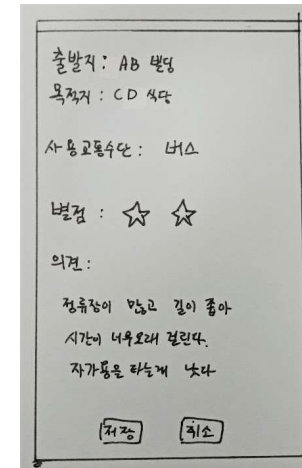 출발지: AB 빌딩
목적지: CD 식당
사용교통수단: 버스
별점: ☆ ☆
의견:
정류장이 많고 길이 좁아
시간이 너무오래 걸린다.
자가용을 타는게 낫다
저장 취소